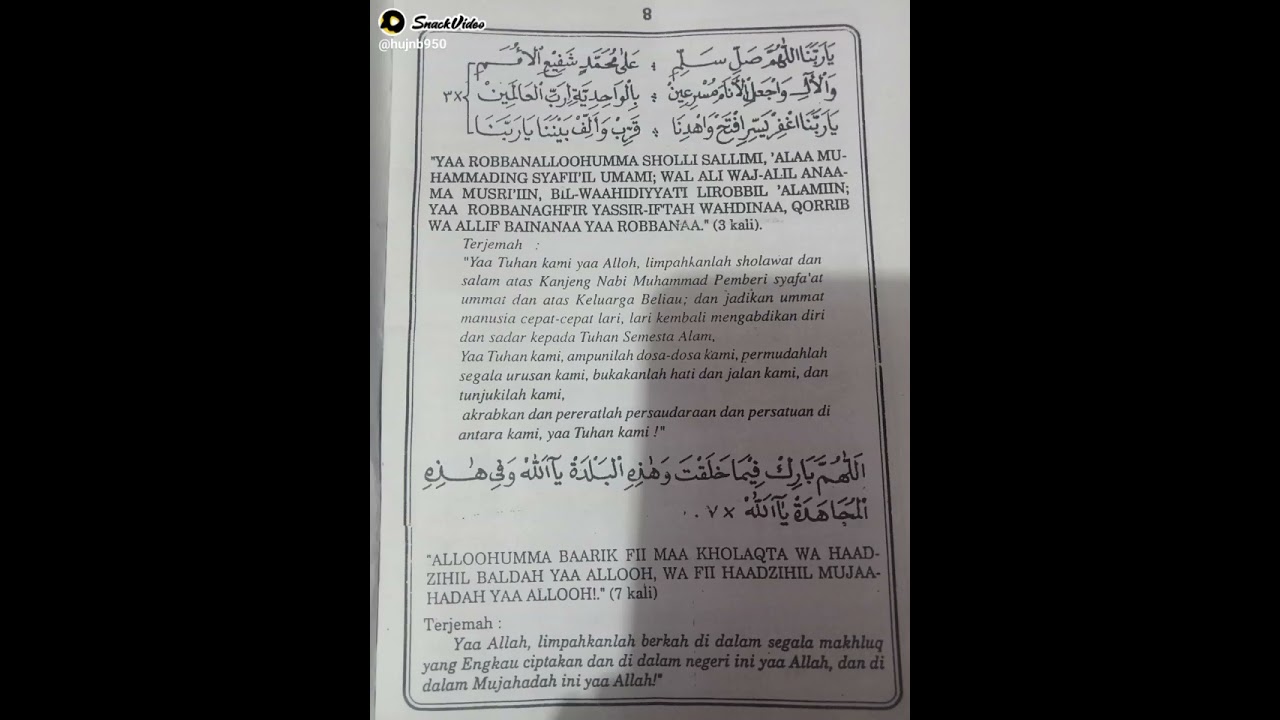 SnackVideo
@hujnb950
8
يَارَبَّنَا اللّٰهُمَّ صَلِّ سَلِّمِ ؞ عَلٰى مُحَمَّدٍ شَفِيْعِ الْأُمَمِ
وَالْأٰلِ وَاجْعَلِ الْأَنَامَ مُسْرِعِيْنَ ؞ بِالْوَاحِدِيَّةِ لِرَبِّ الْعَالَمِيْنَ
٣x
يَارَبَّنَا اغْفِرْ يَسِّرِ افْتَحْ وَاهْدِنَا ؞ قَرِّبْ وَأَلِّفْ بَيْنَنَا يَارَبَّنَا
"YAA ROBBANALLOOHUMMA SHOLLI SALLIMI, 'ALAA MU-
HAMMADING SYAFII'IL UMAMI; WAL ALI WAJ-ALIL ANAA-
MA MUSRI'IIN, BIL-WAAHIDIYYATI LIROBBIL 'ALAMIIN;
YAA ROBBANAGHFIR YASSIR-IFTAH WAHDINAA, QORRIB
WA ALLIF BAINANAA YAA ROBBANAA." (3 kali).
Terjemah :
"Yaa Tuhan kami yaa Alloh, limpahkanlah sholawat dan
salam atas Kanjeng Nabi Muhammad Pemberi syafa'at
ummat dan atas Keluarga Beliau; dan jadikan ummat
manusia cepat-cepat lari, lari kembali mengabdikan diri
dan sadar kepada Tuhan Semesta Alam,
Yaa Tuhan kami, ampunilah dosa-dosa kami, permudahlah
segala urusan kami, bukakanlah hati dan jalan kami, dan
tunjukilah kami,
akrabkan dan pereratlah persaudaraan dan persatuan di
antara kami, yaa Tuhan kami !"
اَللّٰهُمَّ بَارِكْ فِيْمَا خَلَقْتَ وَهٰذِهِ الْبَلْدَةْ يَآ اَللّٰهْ وَفِيْ هٰذِهِ
الْمُجَاهَدَةْ يَآ اَللّٰهْ x ٧
"ALLOOHUMMA BAARIK FII MAA KHOLAQTA WA HAAD-
ZIHIL BALDAH YAA ALLOOH, WA FII HAADZIHIL MUJAA-
HADAH YAA ALLOOH!." (7 kali)
Terjemah :
Yaa Allah, limpahkanlah berkah di dalam segala makhluq
yang Engkau ciptakan dan di dalam negeri ini yaa Allah, dan di
dalam Mujahadah ini yaa Allah!"